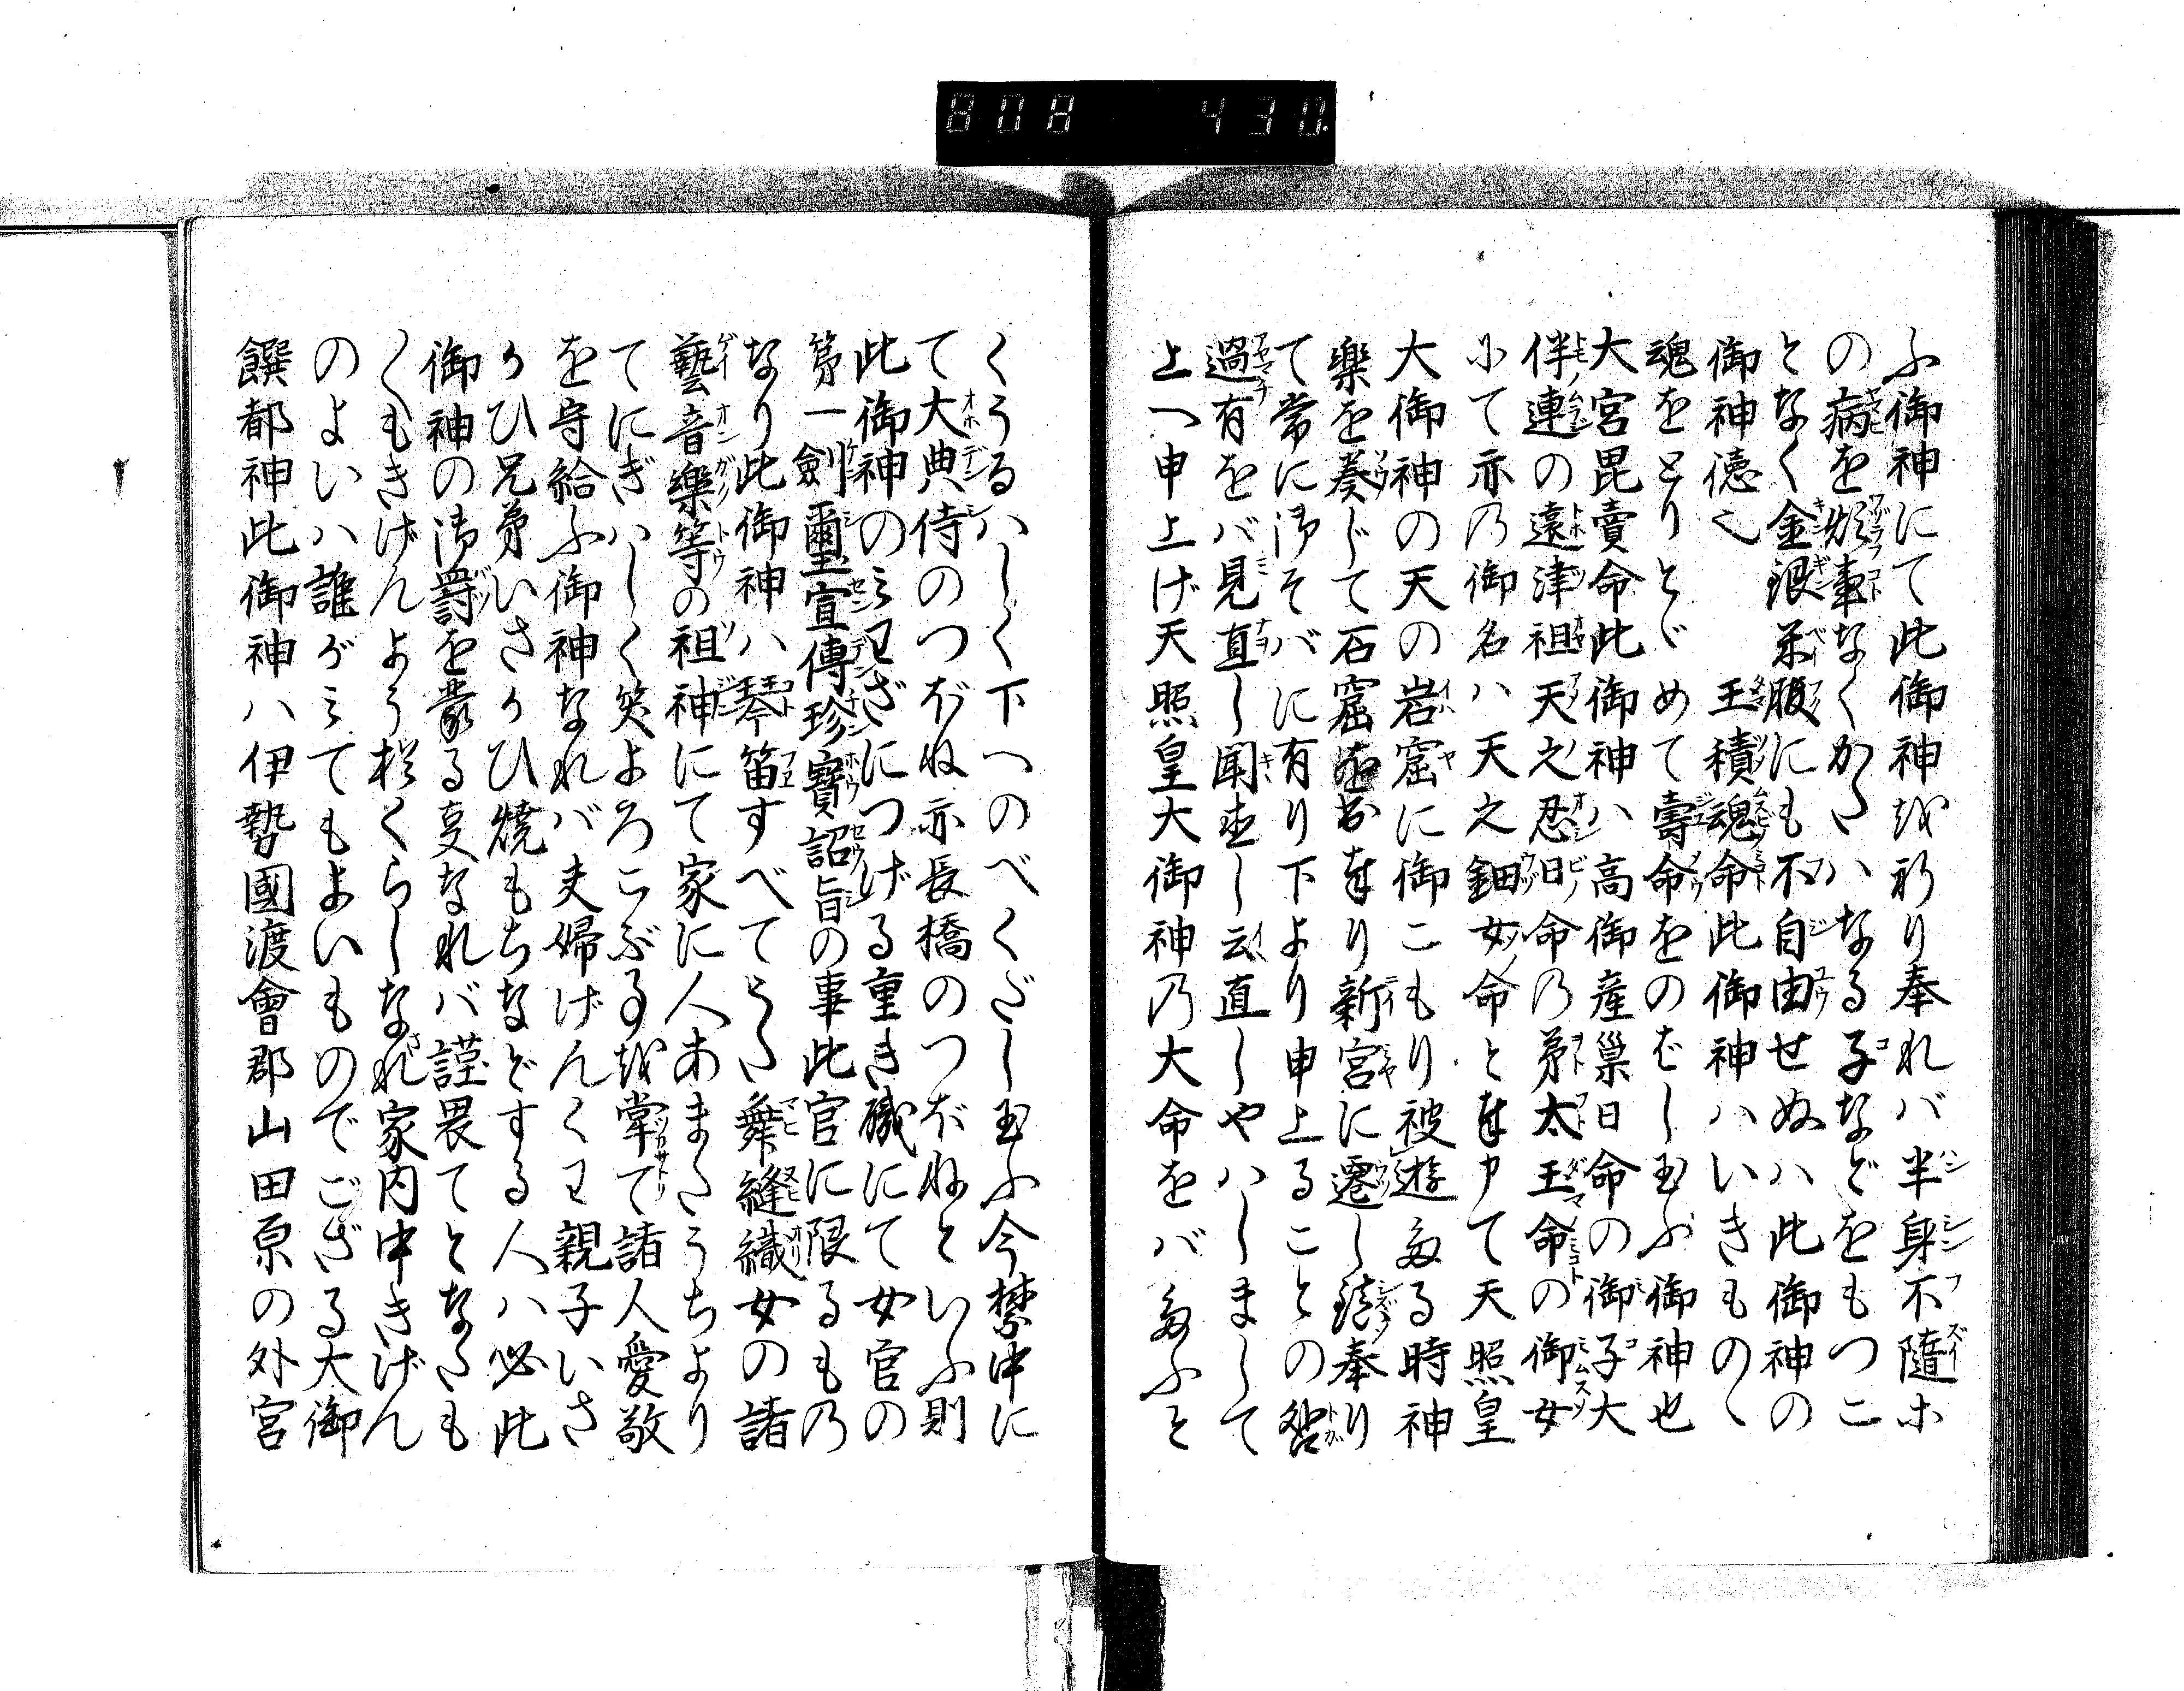 808 430.
ふ御神にて此御神を祈り奉れバ半身不隨ホ
の病を煩事なくかたハなる子などをもつこ
となく金銀米服にも不自由せぬハ此御神の
御神徳也 玉積魂命此御神ハいきものゝ
魂をとりとゞめて壽命をのばし玉ふ御神也
大宮毘賣命此御神ハ高御産巣日命の御子大
伴ノ連の遠津祖天之忍日命乃弟太玉命の御女
にて亦乃御名ハ天之鈿女ノ命と申て天照皇
大御神の天の岩窟に御こもり被遊たる時神
楽を奏じて石窟を出奉り新宮に遷し鎮奉り
て常に御そバに有り下より申上ることの咎
過有をバ見直し聞直し云直しやハしまして
上へ申上げ天照皇大御神乃大命をバたふと
くうるハしく下へのべくだし玉ふ今禁中に
て大典侍のつぼね亦長橋のつぼねといふ則
此御神のみわざにつげる重き職にて女官の
第一劍璽宣傳珍寳詔旨の事此官に限るもの
なり此御神ハ琴笛すべてうた舞縫織女の諸
藝音樂等の祖神にて家に人あまたうちより
てにぎハしく笑よろこぶ事を掌て諸人愛敬
を守給ふ御神なれバ夫婦げんくわ親子いさ
かひ兄弟いさかひ燒もちなどする人ハ必此
御神の御罰を蒙る事なれバ謹畏てとなたも
くもきげんよう被くらしなされ家内中きげん
のよいハ誰がミてもよいものでござる大御
饌都神此御神ハ伊勢國渡會郡山田原の外宮